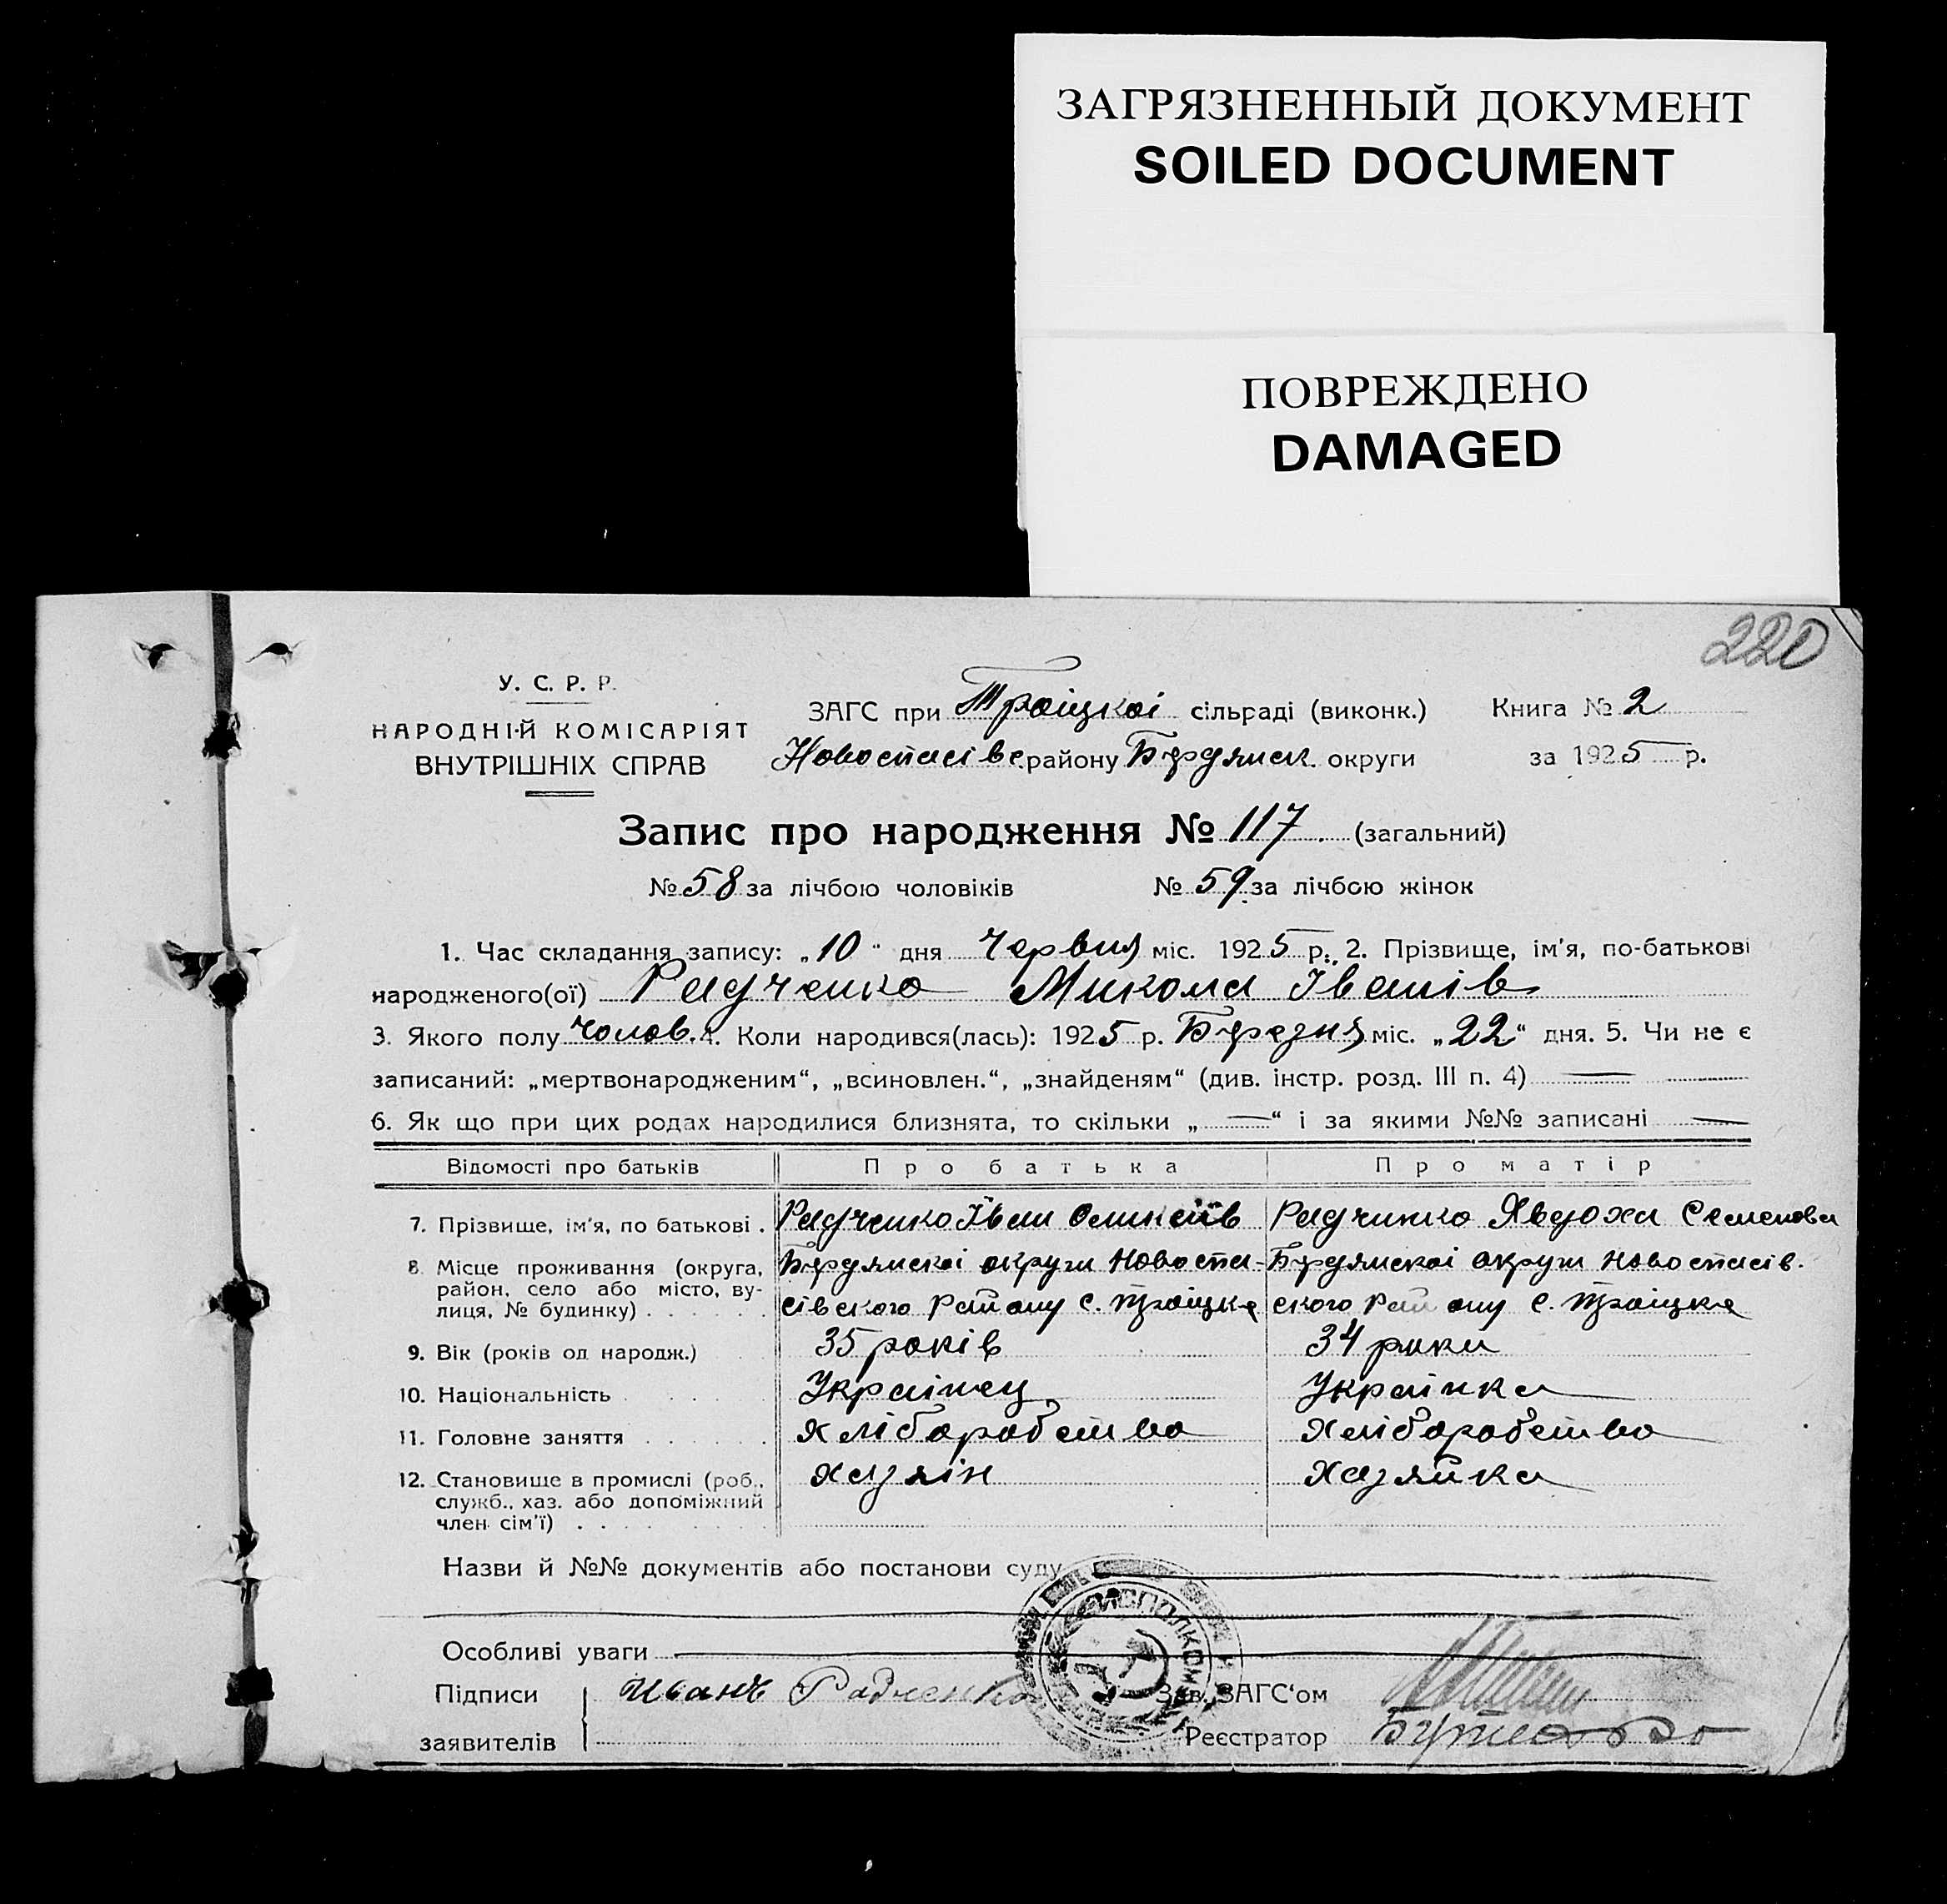 ЗАГРЯЗНЕННЫЙ ДОКУМЕНТ
SOILED DOCUMENT
ПОВРЕЖДЕНО
DAMAGED
220
У. С. Р. Р.
НАРОДНІЙ КОМІСАРІЯТ
ВНУТРІШНІХ СПРАВ
ЗАГС при Троіцкоі сільраді (виконк.) Книга № 2
Новоспасівс. району Бердянск. округи за 1925 р.
Запис про народження № 117 (загальний)
№ 58 за лічбою чоловіків № 59 за лічбою жінок
1. Час складання запису: „10“ дня Червня міс. 1925 р. 2. Прізвище, ім'я, по-батькові
народженого(ої) Радченко Микола Іванів
3. Якого полу Чолов. 4. Коли народився(лась): 1925 р. Березня міс. „22“ дня. 5. Чи не є
записаний: „мертвонародженим“, „всиновлен.“, „знайденям“ (див. інстр. розд. III п. 4)
6. Як що при цих родах народилися близнята, то скільки „—“ і за якими №№ записані —
Відомості про батьків Про батька Про матір
7. Прізвище, ім'я, по батькові . Радченко Іван Радчинко Явдоха Семенова
8. Місце проживання (округа, район, село або місто, вулиця, № будинку) Бердянскоі округи Новоспа- Бердянскоі округи Новоспасів.
сівского Району с. Троіцке ского Району с. Троіцке
9. Вік (років од народж.) 35 років 34 роки
10. Національність Украінец Украінка
11. Головне заняття Хліборобство Хліборобство
12. Становище в промислі (роб., служб., хаз. або допоміжний член сім'ї) Хазяін Хазяйка
Назви й №№ документів або постанови суду
Особливі уваги
Підписи заявителів Иванъ Радченко
Зав. ЗАГС'ом
Реєстратор
ИСПОЛКОМ